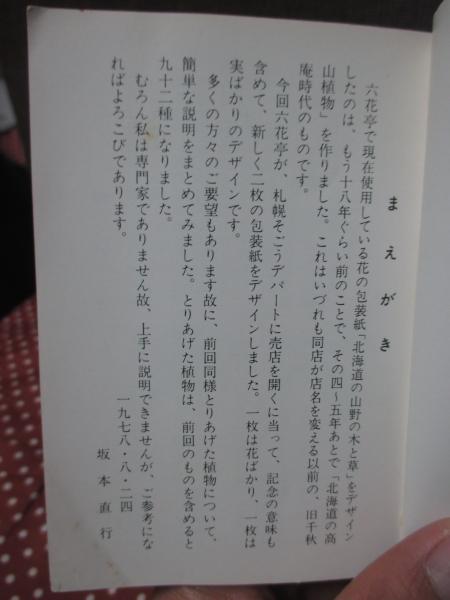 まえがき
六花亭で現在使用している花の包装紙「北海道の山野の木と草」をデザイン
したのは、もう十八年ぐらい前のことで、その四〜五年あとで「北海道の高
山植物」を作りました。これはいづれも同店が店名を変える以前の、旧千秋
庵時代のものです。
今回六花亭が、札幌そごうデパートに売店を開くに当って、記念の意味も
含めて、新しく二枚の包装紙をデザインしました。一枚は花ばかり、一枚は
実ばかりのデザインです。
多くの方々のご要望もあります故に、前回同様とりあげた植物について、
簡単な説明をまとめてみました。とりあげた植物は、前回のものを含めると
九十二種になりました。
むろん私は専門家でありません故、上手に説明できませんが、ご参考にな
ればよろこびであります。
一九七八・八・二四
坂本直行